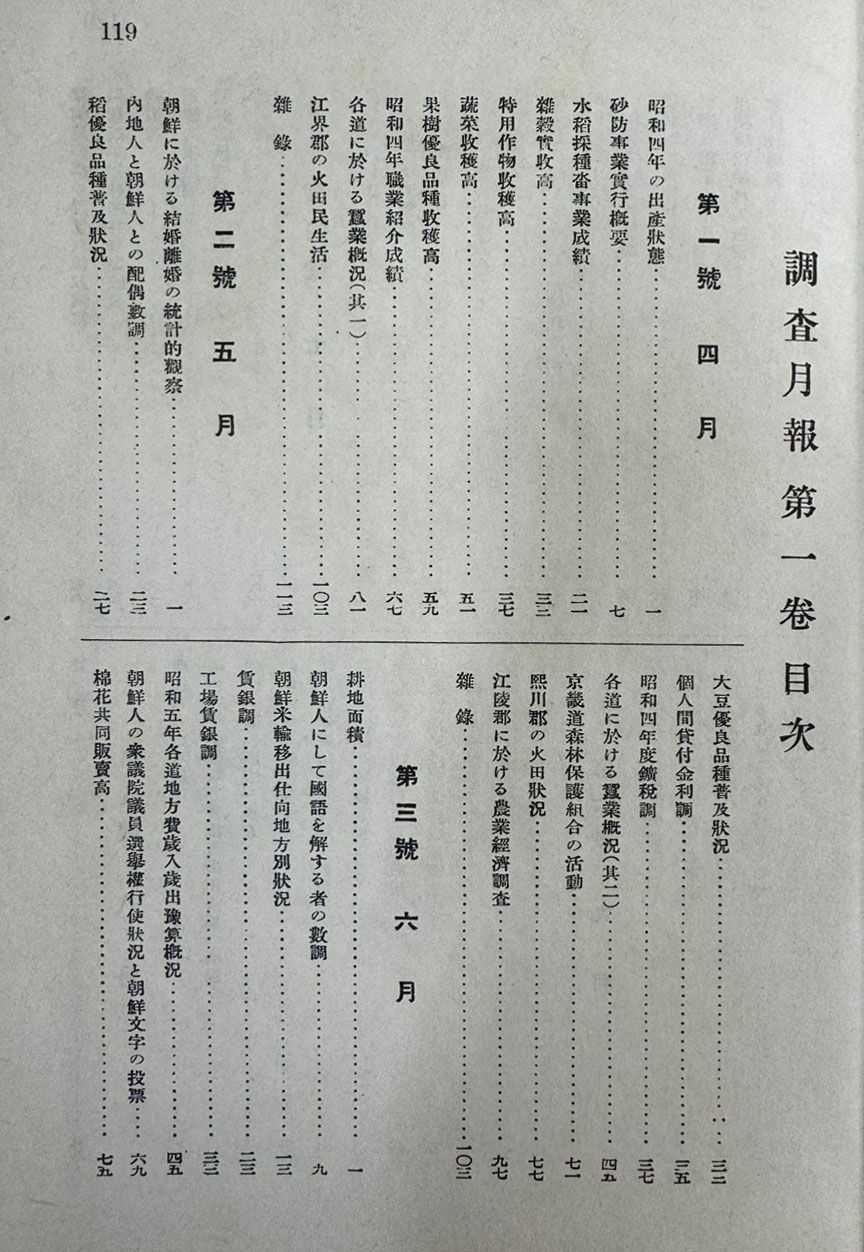 119
調査月報第一卷目次
第一號 四月
昭和四年の出產狀態…………一
砂防事業實行槪要…………七
水稻採種畓事業成績…………二一
雜穀實收高…………三三
特用作物收穫高…………三七
蔬菜收穫高…………五一
果樹優良品種收穫高…………五九
昭和四年職業紹介成績…………六七
各道に於ける蠶業槪況(其一)…………八一
江界郡の火田民生活…………一〇三
雜錄…………一一三
第二號 五月
朝鮮に於ける結婚離婚の統計的觀察…………一
內地人と朝鮮人との配偶數調…………二三
稻優良品種普及狀況…………二七
大豆優良品種普及狀況…………三三
個人間貸付金利調…………三五
昭和四年度鑛稅調…………三七
各道に於ける蠶業槪況(其二)…………四五
京畿道森林保護組合の活動…………七一
熙川郡の火田狀況…………七七
江陵郡に於ける農業經濟調査…………九七
雜錄…………一〇三
第三號 六月
耕地面積…………一
朝鮮人にして國語を解する者の數調…………九
朝鮮米輸移出仕向地方別狀況…………一三
賃銀調…………二三
工場賃銀調…………三三
昭和五年各道地方費歲入歲出豫算槪況…………四五
朝鮮人の衆議院議員選擧權行使狀況と朝鮮文字の投票…………六九
棉花共同販賣高…………七五